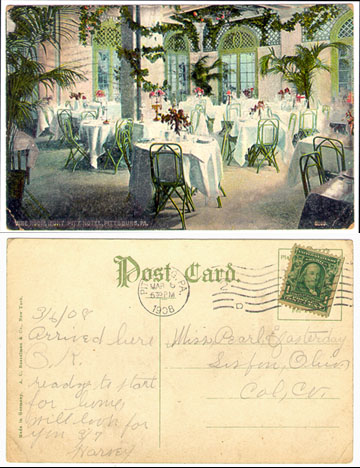 HOTEL, PITTSBURG, PA.
Post Card.
PITTSBURG, PA.
MAR 6
630 PM
1908
3/6/08
Arrived here
O.K.
ready to start
for home
will look for
you 3/7
Harvey
Miss Pearl Easterday
Lisbon, Ohio
Col. Co.
Made in Germany. A. C. Bosselman & Co., New York.